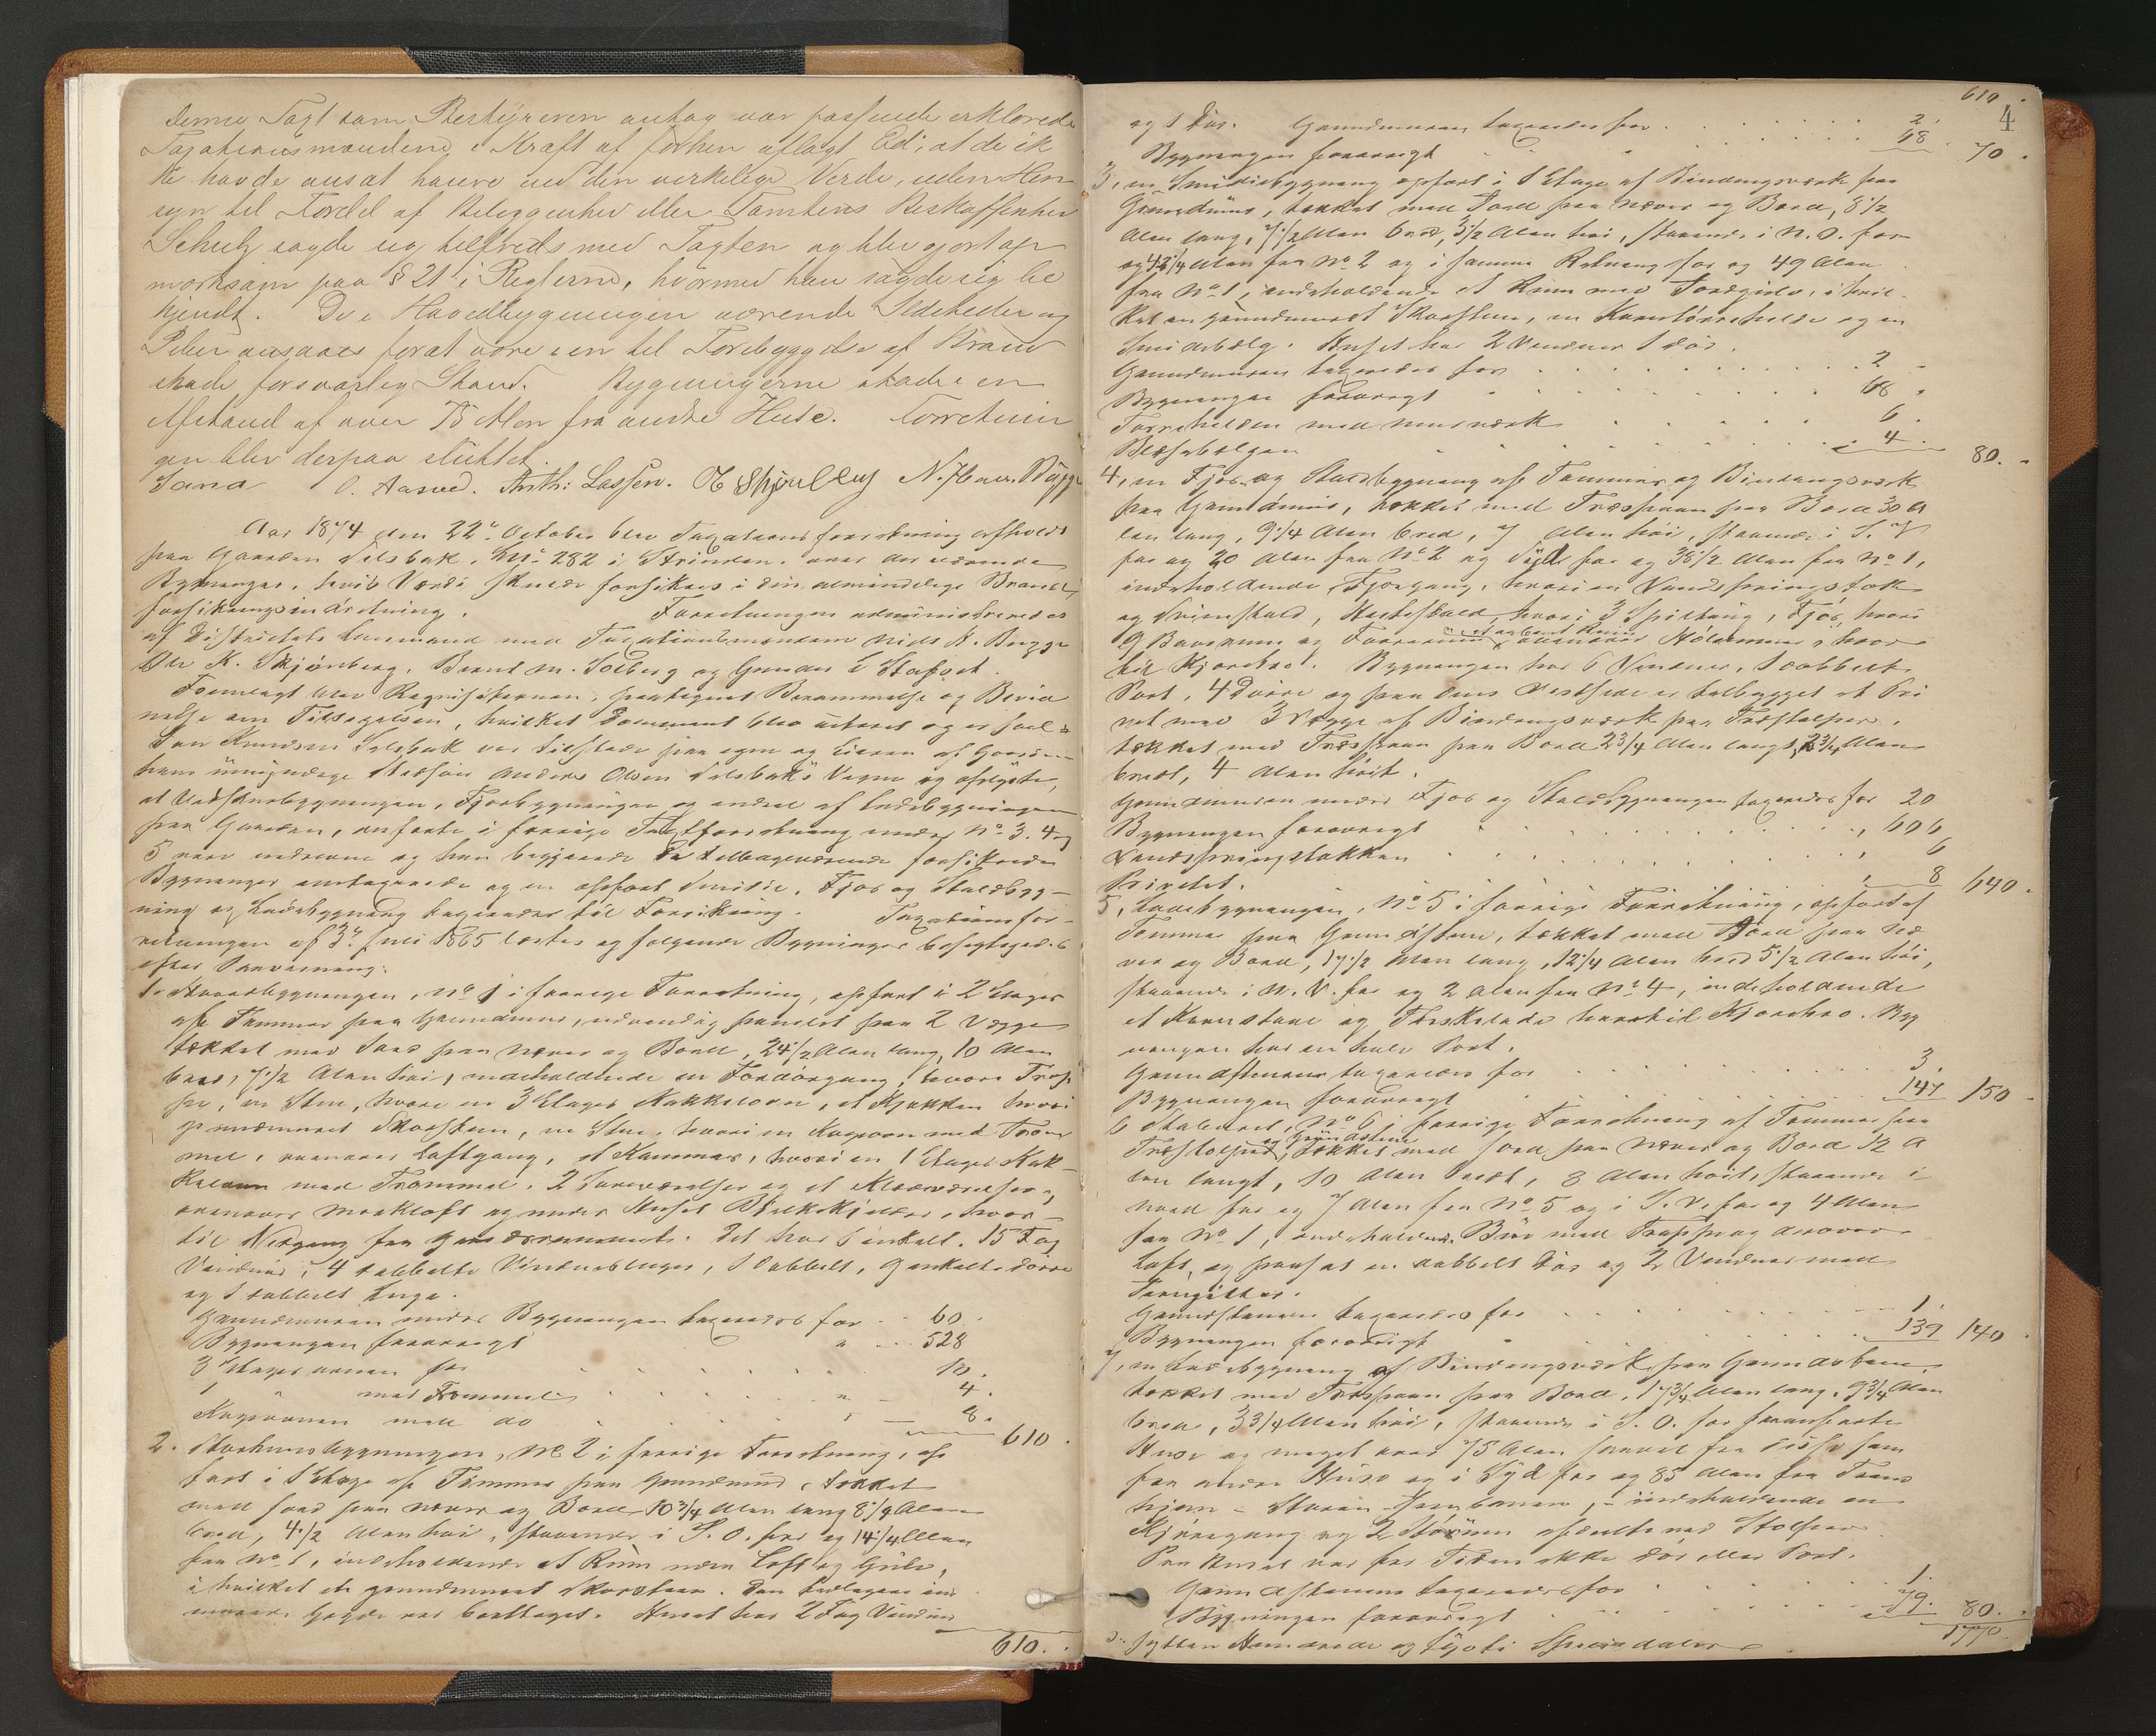 denne Taxt som Bestyreren antog var passende erklærede
Taxationsmændene i Kraft af forhen aflagt Ed, at de ik
ke havde ansat høiere end den virkelige Værdi, uden Hen
syn til Fordel af Beliggenhed eller Tomtens Beskaffenhed
Schulz sagde sig tilfreds med Taxten og blev gjort op
mærksom paa § 21 i Reglerne, hvormed han sagde sig be
kjendt. De i Hovedbygningen værende Ildsteder og
Piber ansaaes for at være i en til Forebyggelse af Brand
skade forsvarlig Stand. Bygningerne staae i en
Afstand af over 75 Alen fra andre Huse. Forretnin
gen blev derpaa sluttet.
O. Aasved. Anth: Lassen. N. Hans. Bügge
Aar 1874 den 22de October blev Taxationsforretning afholdt
paa Gaarden Selsbak, Mt No 282 i Strinden, over der værende
Bygninger, hvis Værdi skulde forsikres i den almindelige Brand
forsikringsindretning. Forretningen administreredes
af Districtets Lensmand med Taxationsmændene Niels H. Bugge
Ole K. Skjønberg, Bernt M. Solberg og Gunder L Stafset.
Fremlagt blev Reqvisitionen, paategnet Berammelse og Bevid
nelse om Tilsigelsen, hvilket Document blev
Knudsen Selsbak var tilstede paa egen og Eieren af Gaarden
hans umyndige Stedsøn Anders Olsen Selsbak's Vegne og oplyste,
at Vaaningsbygningen, Fjøsbygningen og endeel af Ladebygningen
paa Gaarden, anførte i forrige Taxtforretning under No 3. 4 og
5 vare nedrevne og han begjærede de tilbageværende forsikrede
Bygninger omtaxerede og en opført Smidie, Fjøs og Staldbyg-
ning og Ladebygning taxerede til Forsikring. Taxationsfor-
retningen af 3de Juli 1865 læstes og følgende Bygninger besigtigedes
efter Paavisning:
1. Hovedbygningen, No 1 i forrige Forretning, opført i 2 Etager
af Tømmer paa Grundmur, udvendig panelet paa 2 Vægge
tækket med Jord paa Næver og Bord, 24 1/2 Alen lang, 10 Alen
bred, 7 1/2 Alen høi, indeholdende en Fordørgang, hvori Trap
pe, en Stue, hvori en 3 Etages Kakkelovn, et Kjøkken hvori
grundmuret Skorsten, en Stue, hvori en Kogeovn med Trom
mel, ovenover Loftgang, et Kammer, hvori en 1 Etages Kak-
kelovn med Trommel. 2 Soveværelser og et Klædeværelse,
ovenover Mørkloft og under Huset Kjelder, hvor-
til Nedgang fra Gaardsrummet. Det har 15 Fag
Vinduer, 4 dobbelte Vinduesluger, 1 dobbelt, 9 enkelte Døre
og 1 dobbelt Luge.
Grundmuren under Bygningen taxeredes for 60.
Bygningen forøvrigt " 528
3 Etages ovnen for 10.
1 " med Trommel " 4.
Kogeovnen med do " 8. 610.
2. Storhusbygningen, No 2 i forrige Forretning, op
ført i 1 Etage af Tømmer paa Grundmur, tækket
med Jord paa Næver og Bord 10 3/4 Alen lang 8 1/4 Alen
bred, 4 1/2 Alen høi, staaende i S. O. for og 14 1/4 Alen
fra No 1, indeholdende et Rum uden Loft og Gulv,
i hvilket en grundmuret Skorsten. Den tidligere ind
murede Gryde var borttaget. Huset har 2 Fag Vinduer
610.
610.
4
og 1 Dør. Grundmuren taxeredes for 2.
Bygningen forøvrigt 68. 70.
3, en Smidiebygning opført i 1 Etage af Bindingsværk paa
Grundmur, tækket med Jord paa Næver og Bord, 8 1/2
Alen lang, 7 1/2 Alen bred, 3 1/2 Alen høi, staaende i N. O. for
og 42 1/4 Alen fra No 2 og i samme Retning for og 49 Alen
fra No 1, indeholdende et Rum med Jordgulv, i hvil-
ket en grundmuret Skorsten, en Korntørrehelde og en
Smidiebælg. Huset har 2 Vinduer 1 Dør.
Grundmuren taxeredes for 2
Bygningen forøvrigt 68.
Tørrehelden med Murværk 6.
Blæsebælgen 4. 80.
4, en Fjøs- og Staldbygning af Tømmer og Bindingsværk
paa Grundmur, tækket med Træspaan paa Bord 30 A
len lang, 9 1/4 Alen bred, 7 Alen høi, staaende i S. V
for og 20 Alen fra No 2 og Syd for og 38 1/2 Alen fra No 1,
indeholdende Fjøsgang, hvori en Vandspringstok
og Svinestald, Hestestald, hvori 3 Spiltoug, Fjøs, hvori
9 Baaserum og Foderrum, et aabent Rum, ovenover Høerum, hvor
til Kjørebro. Bygningen har 6 Vinduer, 1 dobbelt
Port, 4 Døre og paa dens Vestside er tilbygget et Pri
vet med 3 Vægge af Bindingsværk paa Træstolper,
tækket med Træspaan paa Bord 2 3/4 Alen langt, 2 3/4 Alen
bredt, 4 Alen høit.
Grundmuren under Fjøs og Staldbygningen taxeredes for 20
Bygningen forøvrigt " 606
Vandspringstokken " 6
Privetet. " 8 640.
5, Ladebygningen, No 5 i forrige Forretning, opført af
Tømmer paa Grundstene, tækket med Jord paa Næ
ver og Bord, 17 1/2 Alen lang, 12 1/4 Alen bred 5 1/2 Alen høi,
staaende i N. V. for og 2 Alen fra No 4, indeholdende
et Kornstaal og Tærskelade hvortil Kjørebro. Byg
ningen har en halv Port.
Grundstenene taxeredes for 3.
Bygningen forøvrigt 147 150
6 Staburet, No 6 i forrige Forretning af Tømmer paa
Træstolper og Grundstene, tækket med Jord paa Næver og Bord 12 A
len langt, 10 Alen bredt, 8 Alen høit, staaende i
Nord for og 7 Alen fra No 5 og i S. V. for og 4 Alen
fra No 1, indeholdende Bur med Trappe og derover
Loft, og paasat en dobbelt Dør og 2 Vinduer med
Jerngitter.
Grundstenene taxeredes for 1.
Bygningen forøvrigt 139 140.
7, en Ladebygning af Bindingsværk paa Grundstene,
tækket med Træspaan paa Bord, 17 3/4 Alen lang, 9 3/4 Alen
bred, 3 3/4 Alen høi, staaende i S. O. for foranførte
Huse og meget over 75 Alen saavel fra disse som
fra andre Huse og i Syd for og 85 Alen fra Trond
hjem - Støren - Jernbanen, - indeholdende en
Kjøregang og 2 Høerum afdeelte ved Stolper.
Paa Huset var for Tiden ikke Dør eller Port.
Grundstenene taxeredes for 1.
Bygningen forøvrigt 79. 80.
1770.
Sytten Hundrede og Syvti Speciedaler